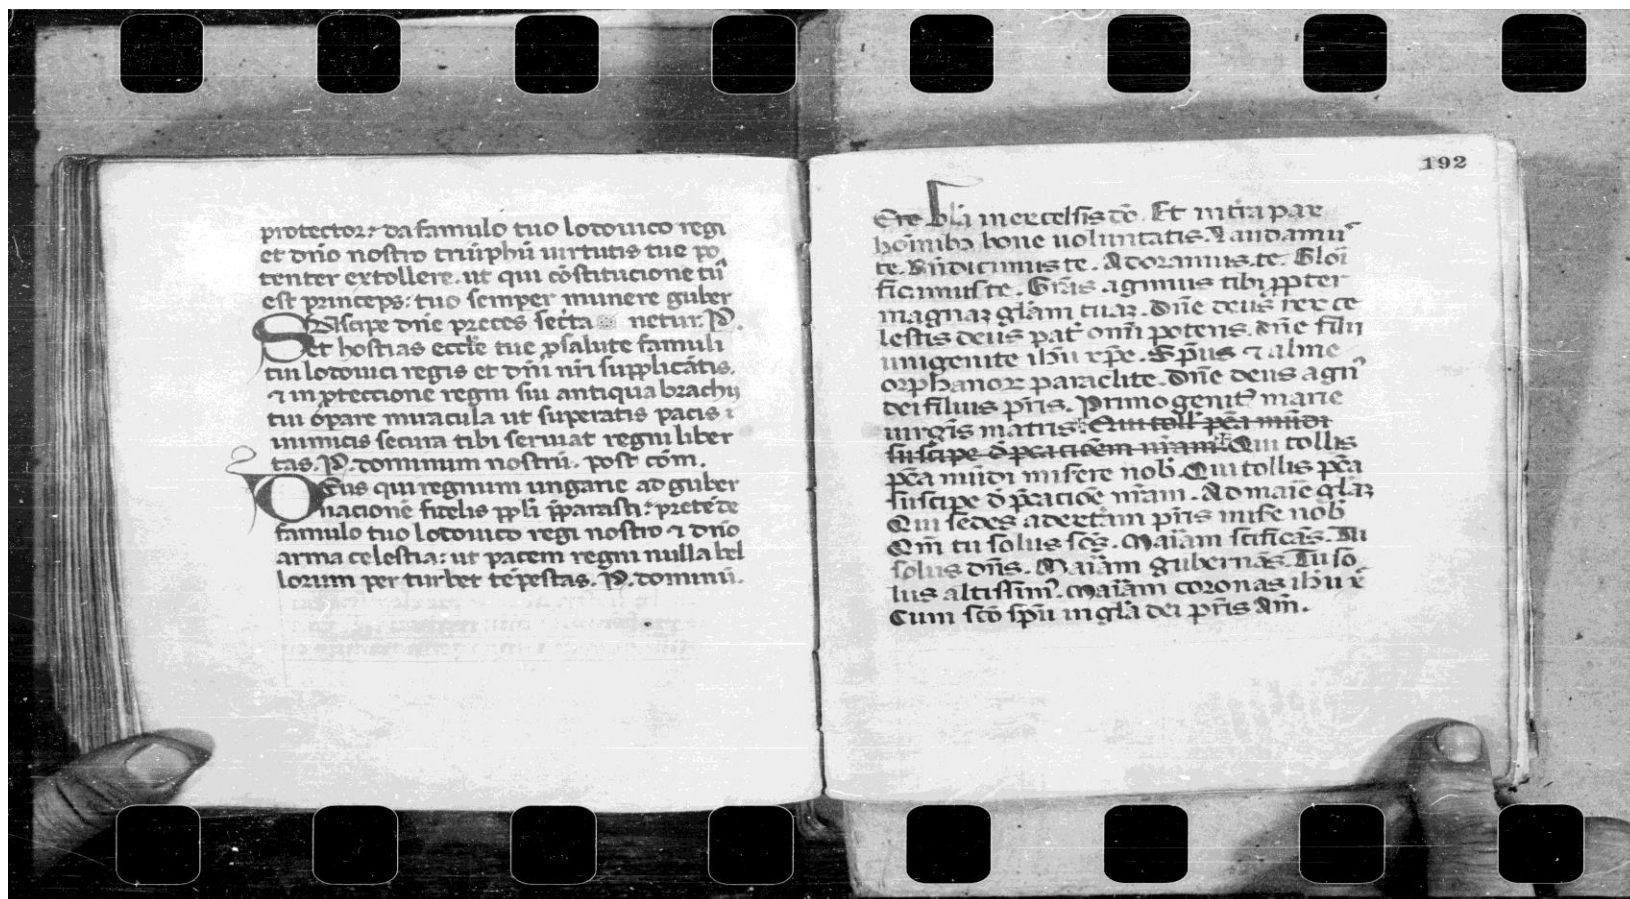 protector: da famulo tuo lodouico regi
et dn̄o nostro triūphū uirtutis tue po
tenter extollere. ut qui cōstitucione tū
est princeps: tuo semper munere guber
netur. P.
Suscipe dn̄e preces
et hostias eccle tue ꝓ salute famuli
tui lodouici regis et dn̄i nr̄i supplicātis.
⁊ in ꝓteccione regni sui antiqua brachij
tui opare miracula ut superatis pacis i
nimicis secura tibi seruiat regni liber
tas. P. dominum nostrū. post cōm.
Deus qui regnum ungarie ad guber
nacionē fidelis ppli p̄parasti: pretēde
famulo tuo lodouico regi nostro ⁊ dn̄o
arma celestia: ut pacem regni nulla bel
lorum per turbet tēpestas. P. dominū.
192
in excelsis dō. Et in tr̄a pax
hominibꝫ bone uoluntatis. Laudamuˀ
te. Bn̄dicimus te. Adoramus te. Glori
ficamus te. Grās agimus tibi ꝓpter
magnaꝫ glām tuaꝫ. Dn̄e deus rex ce
lestis deus pat̄ om̄i potens. Dn̄e fili
unigenite ihū xp̄e. Sp̄us ⁊ alme
orphanoꝝ paraclite. Dn̄e deus agnˀ
dei filius pr̄is. Primogenitˀ marie
uirgīs matris. Qui toll' pc̄a mūdi
suscipe dp̄cacioēm nr̄am. Qui tollis
pc̄a mūdi misere nob. Qui tollis pc̄a
suscipe dp̄cacioē nr̄am. Ad marie glāꝫ
Qui sedes ad dextām pr̄is mise nob
Qm̄ tu solus scs̄. Mariam sc̄ificās. Tu
solus dn̄s. Mariām gubernās. Tu so
lus altissimˀ. Mariām coronas ihū x̄
Cum scō spū in glā dei pr̄is am̄.